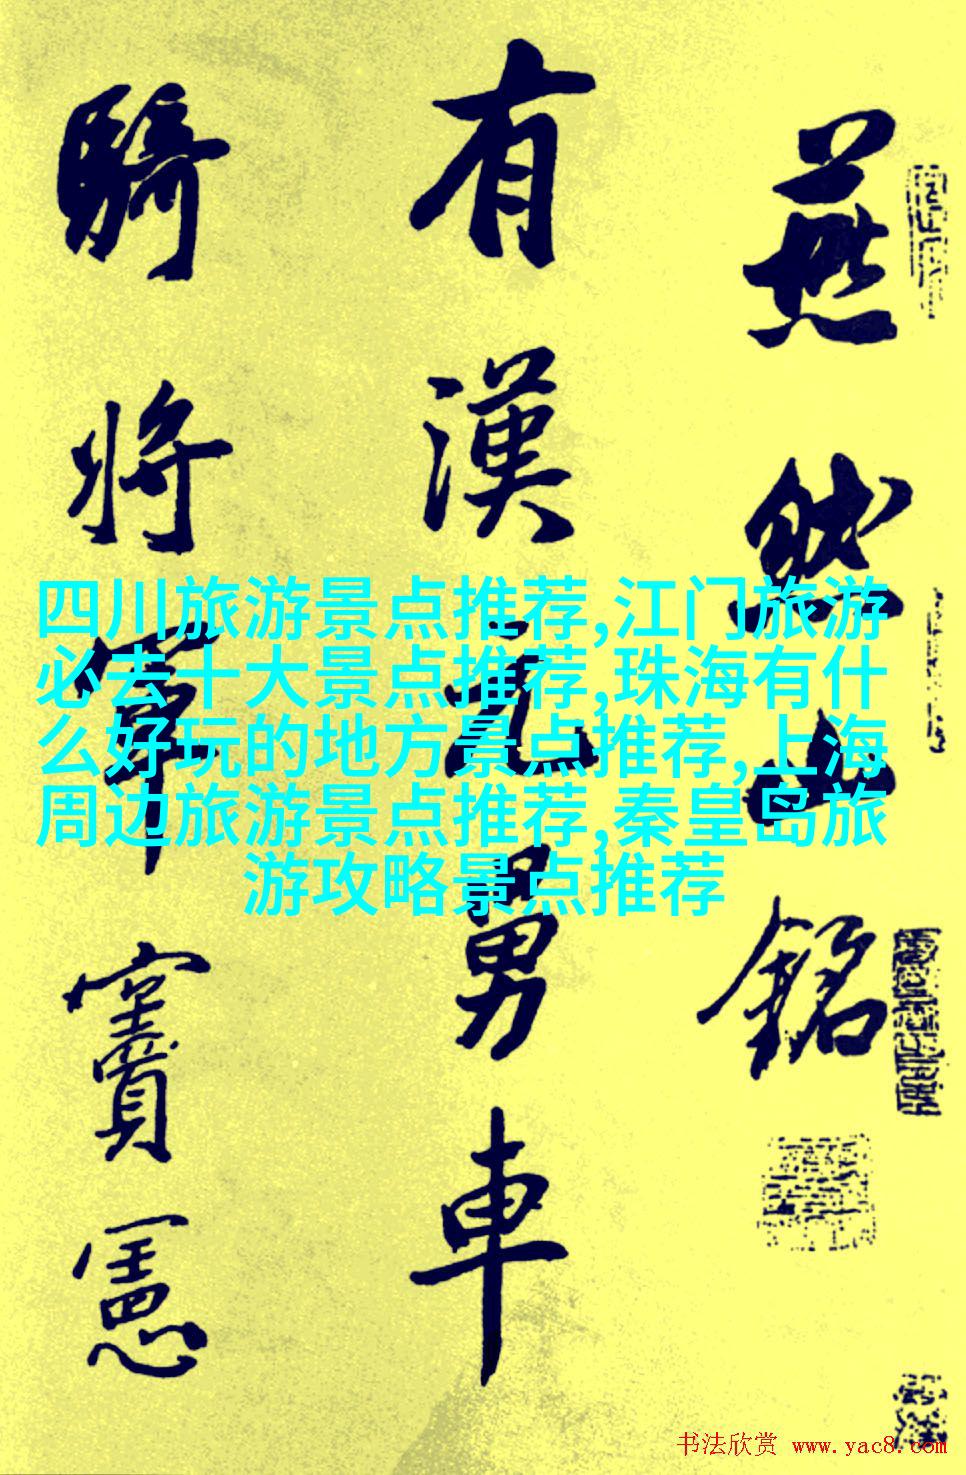 燕然山銘
有漢元舅車
騎將軍竇憲
四川旅游景点推荐,江门旅游
必去十大景点推荐,珠海有什
么好玩的地方景点推荐,上海
周边旅游景点推荐,秦皇岛旅
游攻略景点推荐
书法欣赏 www.yac8.com